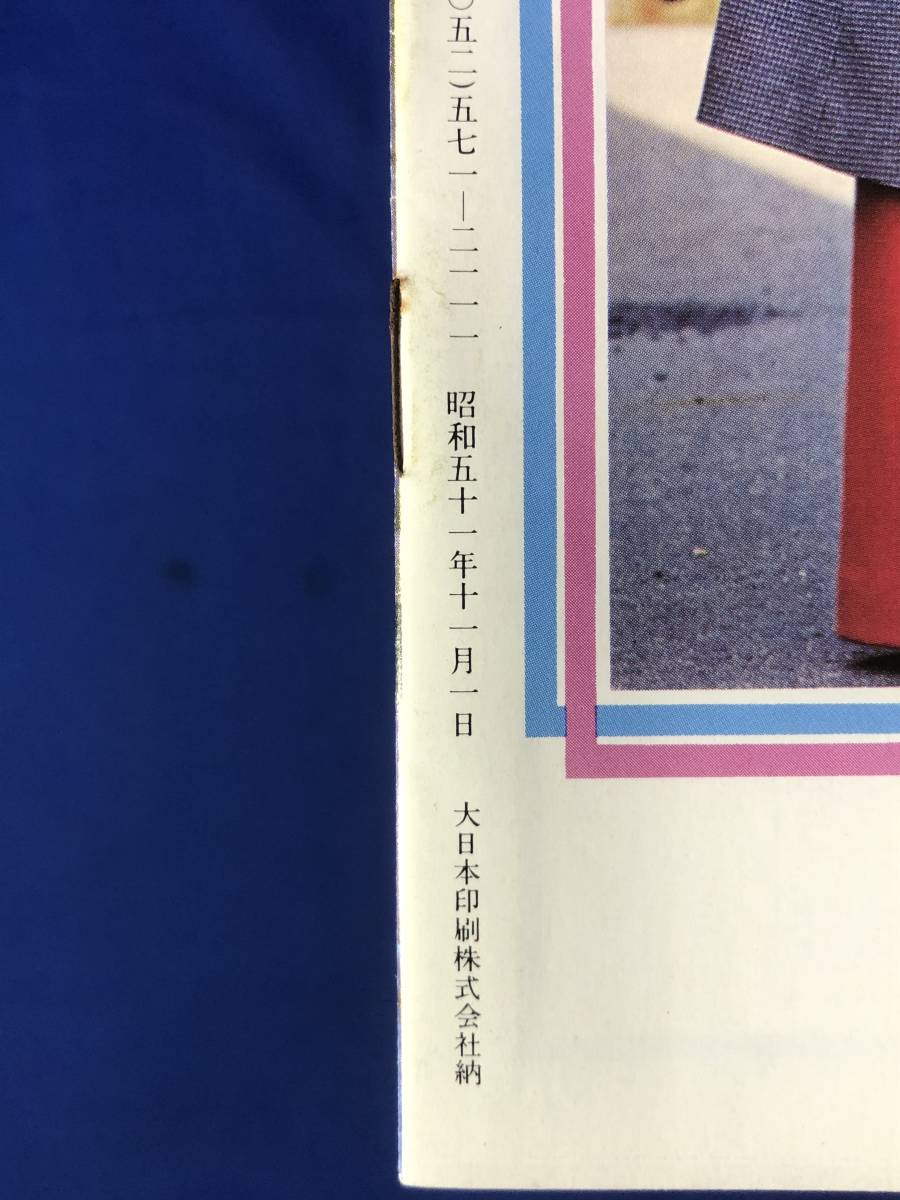 〇五二)五七一―二一一一 昭和五十一年十一月一日 大日本印刷株式会社納